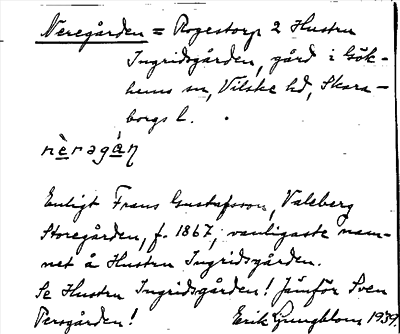 Neregården = Rogestorp 2 Hustru
Ingridsgården, gård i Gök-
hems sn, Vilske hd, Skara-
borgs l.
nèragáṇ
Enligt Frans Gustafsson, Valeberg
Storegården, f. 1867, vanligaste nam-
net å Hustru Ingridsgården.
Se Hustru Ingridsgården! Jämför Sven
Persgården! Erik Ljungblom 1939